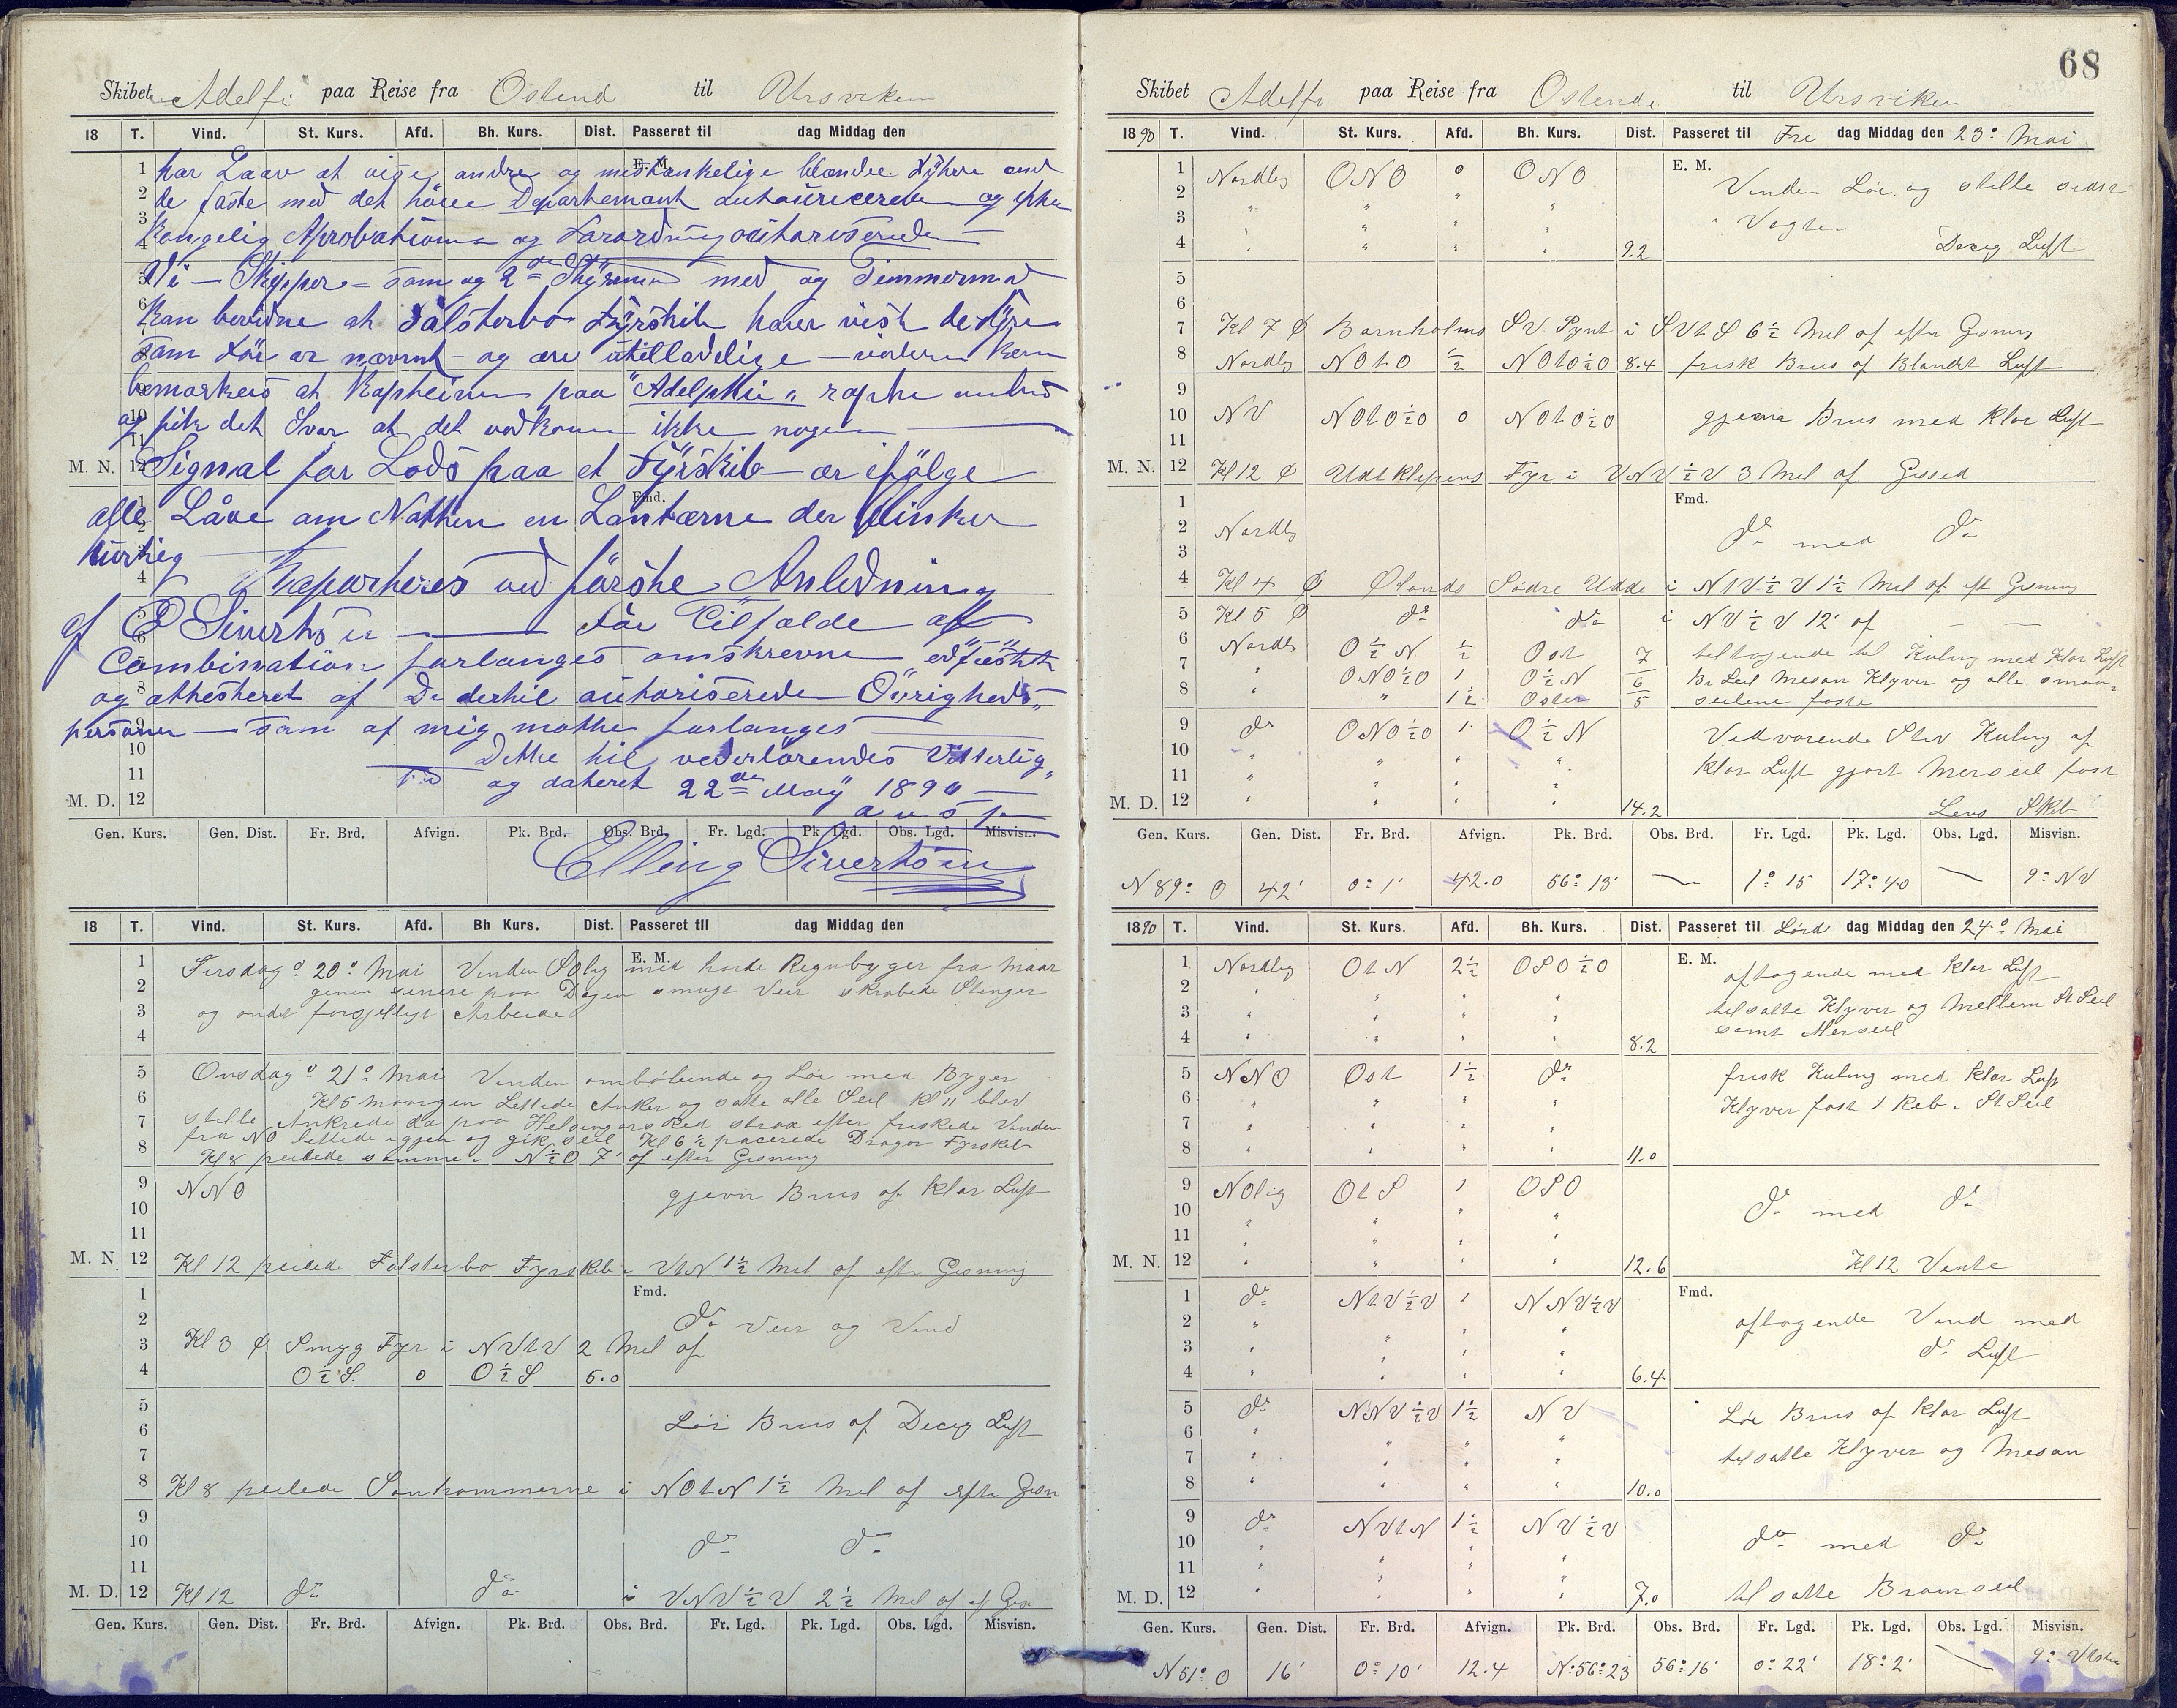 Skibet Adelfi paa Reise fra Ostend til Ursviken
18 T. Vind. St. Kurs. Afd. Bh. Kurs. Dist. Passeret til dag Middag den
E. M.
har Laav at vige andre og mistænkelige blandee Fyhre end
de faste med det höiee Departemant autouricerede og efter
Kongelig Aprobation og Farordning outhariserede
Vi - Skipper - som og 2den Styrmand med og Timmermand
Kan bevidne at Falsterbo Fyrskib harer vist de Fyre
som För er nævnt - og ere utilladelige - videre kan
bemærkes at Kapteinen paa "Adelphie" rapte
og fik det Svar at det vedkom ikke nogen
Signal for Lods paa et Fyrskib er ifölge
alle Låve om Natten en Lantærne der blinker
hurtig
Raparteres ved förshe Anledning
af E Sivertsen För Tilfalde af
Combination forlanges omskrevne
og atthesteret af De dertil autoriserede Övrigheds-
personer - som af mig motte forlanges
Dette til vederlörendes Vitterlig-
hed og dateret 22de May 1890
Elling Sivertsen
M. N.
Fmd.
M. D.
Gen. Kurs. Gen. Dist. Fr. Brd. Afvign. Pk. Brd. Obs. Brd. Fr. Lgd. Pk. Lgd. Obs. Lgd. Misvisn.
18 T. Vind. St. Kurs. Afd. Bh Kurs. Dist. Passeret til dag Middag den
E. M.
Tirsdag d 20de Mai Vinden SOlig med harde Regnbyger fra Maar
genen senere paa Dagen smugt Veir skrabede Stenger
og andet forsjelligt Arbeide
Onsdag d 21de Mai Vinden omböbende og Löi med Byger
Kl 5 Morgen Lettede Anker og satte alle Seil Kl 11 blev
stille Ankrede da paa Helsingörs Red strax efter friskede Vinden
fra NO lettede igjen og gik seil Kl 6½ pacerede Dragør Fyrskib
Kl 8 peilede samme i N½O 7' af efter Gisning
NNO gjevn Brus af klar Luft
M. N. Kl 12 peilede Falsterbo Fyrskib i VtN 1½ Mil af eftr Gisning
Fmd.
do Veir og Vind
Kl 3 φ Smyg Fyr i NVtV 2 Mil af
O½S. 0 O½S 5.0
Löi Brus af Decig Luft
Kl 8 peilede Sanhammerne i NOtN 1½ Mil af eftr Gisn
do do
M. D. Kl 12 do do i VNV½V 2½ Mil af ef Gis
Gen. Kurs. Gen. Dist. Fr. Brd. Afvign. Pk. Brd. Obs. Brd. Fr. Lgd. Pk. Lgd. Obs. Lgd. Misvisn.
68
Skibet Adelfi paa Reise fra Ostende til Ursviken
1890 T. Vind. St. Kurs. Afd. Bh. Kurs. Dist. Passeret til Fre dag Middag den 23de Mai
E. M.
Nordlig ONO 0 ONO Vinden Löi og stille sidst
" Vagten
9.2 Decig Luft
Kl 7 φ Bornholms SV Pynt i SVtS 6½ Mil af eftr Gisning
Nordlig NOtO ½ NOtO½O 8.4 frisk Brus af Blandet Luft
NV NOtO½O 0 NOtO½O gjevn Brus med klar Luft
M. N. Kl 12 φ Udtklipens Fyr i VNV½V 3 Mil af Gissed
Fmd.
Nordlig do med do
Kl 4 φ Ølands Södre Udde i NtV½V 1½ Mil af eft Gisning
Kl 5 φ do do i NV½V 12' af
Nordli O½N ½ Ost 7 tiltagende til Kuling med klar Luft
" ONO½O 1 O½N 6 Br Seil Mesan Klyver og alle smaa-
" " 1½ Osten 5 seilene faste
do ONO½O 1 O½N Vedvarende Stiv Kuling af
klar Luft gjort Merseil fast
M. D. 14.2 Lens Skib
Gen. Kurs. Gen. Dist. Fr. Brd. Afvign. Pk. Brd. Obs. Brd. Fr. Lgd. Pk. Lgd. Obs. Lgd. Misvisn.
N 89° O 42' 0° 1' 42.0 56° 13' — 1° 15 17° 40 — 9° NV
1890 T. Vind. St. Kurs. Afd. Bh. Kurs. Dist. Passeret til Lörd dag Middag den 24de Mai
E. M.
Nordlig OtN 2½ OSO½O aftagende med klar Luft
tilsatte Klyver og Mellem St Seil
samt Merseil
8.2
NNO Ost 1½ do frisk Kuling med klar Luft
Klyver fast 1 Reb i St Seil
11.0
NOlig OtS 1 OSO do med do
M. N. 12.6 Kl 12 Vente
Fmd.
do NtV½V 1 NNV½V aftagende Vind med
do Luft
6.4
do NNV½V 1½ NV Löi Brus af klar Luft
tilsatte Klyver og Mesan
10.0
do NVtN 1½ NV½V do med do
M. D. 7.0 tilsatte Bramseil
Gen. Kurs. Gen. Dist. Fr. Brd. Afvign. Pk. Brd. Obs. Brd. Fr. Lgd. Pk. Lgd. Obs. Lgd. Misvisn.
N 51° O 16' 0° 10' 12.4 N: 56° 23 56° 16' 0° 22' 18° 2' — 9°